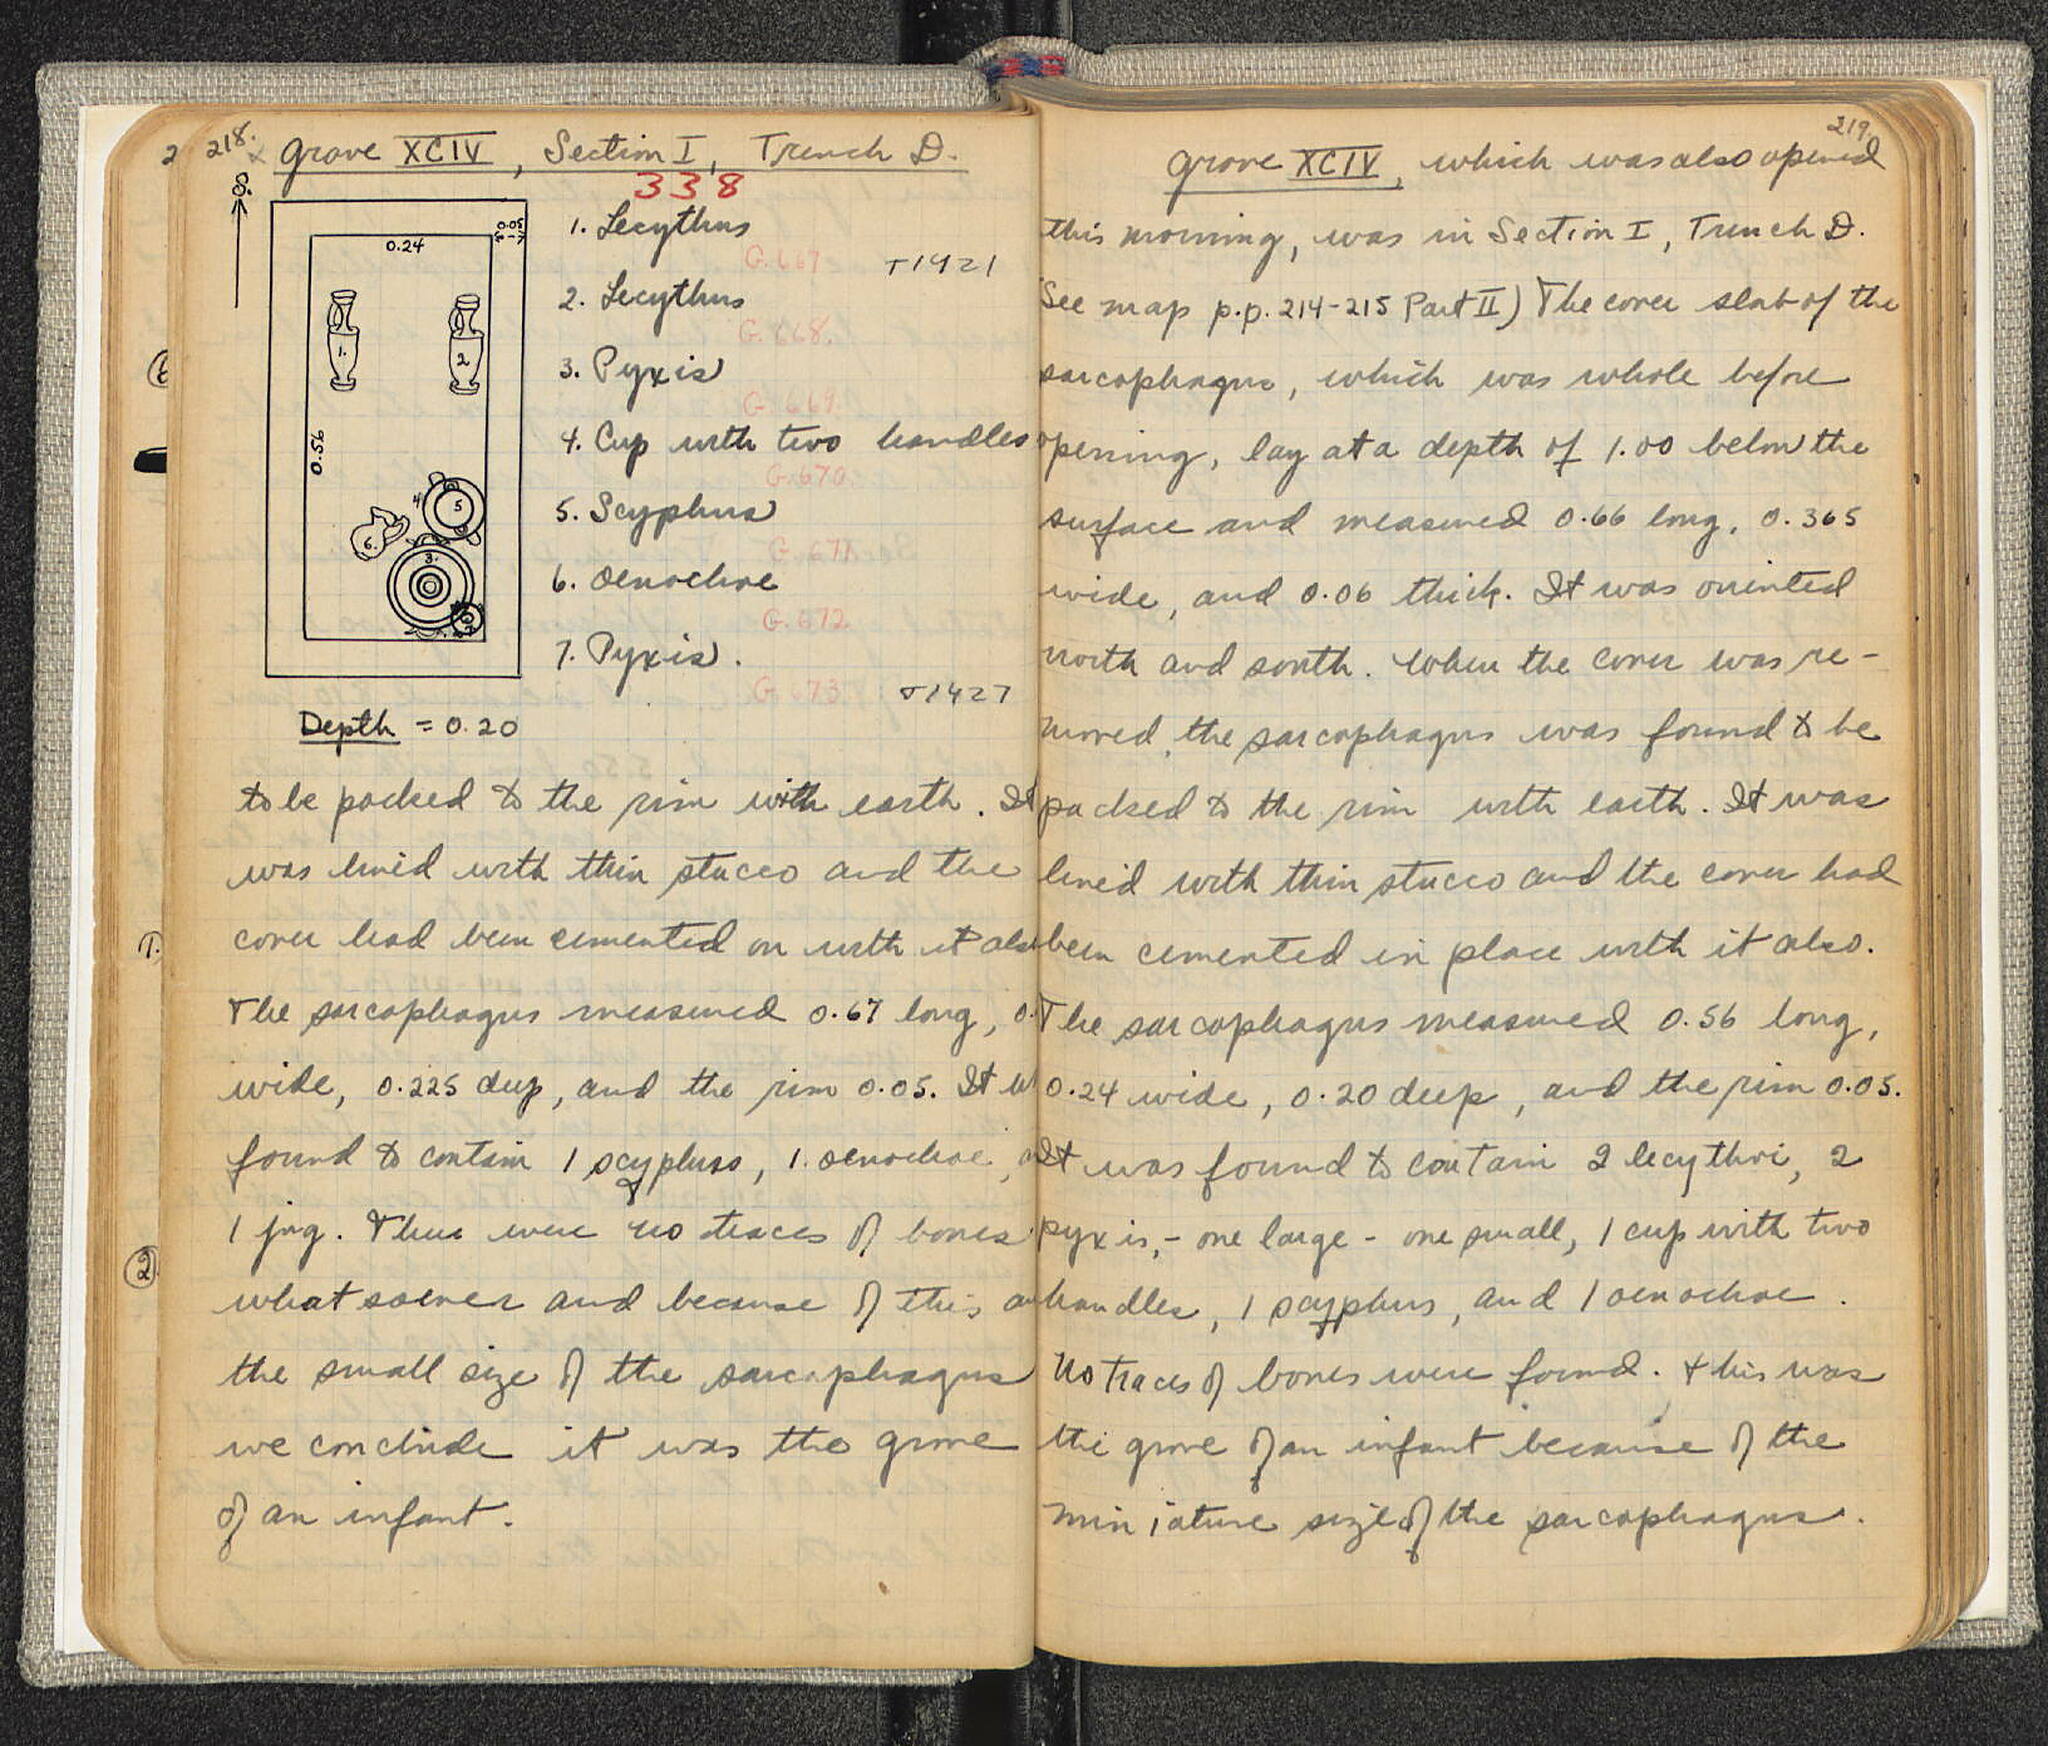 218.
Grave XCIV, Section I, Trench D.
338
S.
0.05
0.24
0.56
1.
2
4
5
6.
3.
7
1. Lecythus
G. 667
T1421
2. Lecythus
G. 668.
3. Pyxis
G. 669.
4. Cup with two handles
G. 670.
5. Scyphus
G. 671.
6. Oenochoe
G. 672.
7. Pyxis.
G. 673.
T1427
Depth = 0.20
to be packed to the rim with earth. It
was lined with thin stucco and the
cover had been cemented on with it also
The sarcophagus measured 0.67 long, 0.
wide, 0.225 deep, and the rim 0.05. It
found to contain 1 scyphus, 1 oenochoe,
1 jug. There were no traces of bones
whatsoever and because of this
the small size of the sarcophagus
we conclude it was the grave
of an infant.
2
6
1.
2
219.
Grave XCIV, which was also opened
this morning, was in Section I, Trench D.
See map p.p. 214-215 Part II) The cover slab of the
sarcophagus, which was whole before
opening, lay at a depth of 1.00 below the
surface and measured 0.66 long, 0.365
wide, and 0.06 thick. It was oriented
north and south. When the cover was re-
moved, the sarcophagus was found to be
packed to the rim with earth. It was
lined with thin stucco and the cover had
been cemented in place with it also.
The sarcophagus measured 0.56 long,
0.24 wide, 0.20 deep, and the rim 0.05.
It was found to contain 2 lecythoi, 2
pyxis,- one large - one small, 1 cup with two
handles, 1 scyphus, and 1 oenochoe.
No traces of bones were found. This was
the grave of an infant because of the
miniature size of the sarcophagus.